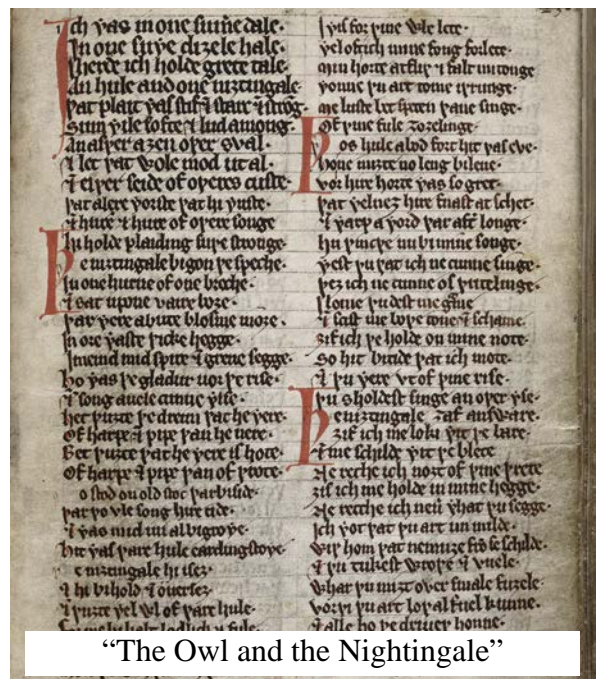 Ich ƿas in one sumere dale.
In one suþe diȝele hale.
Iherde ich holde grete tale.
An hule and one niȝtingale.
Þat plait ƿas stif ⁊ starc ⁊ strong.
Sum ƿile softe ⁊ lud among.
An asþer aȝen oþer sval.
⁊ let þat ƿole mod ut al.
⁊ eiþer seide of oþeres custe.
Þat alre ƿorste þat hi ƿuste.
⁊ hure ⁊ hure of oþere songe
Hi holde plaiding suþe stronge.
Þe niȝtingale bigon þe speche.
In one hurne of one breche.
⁊ sat upone vaire boȝe.
Þar ƿere abute blosme inoȝe.
In ore ƿaste þicke hegge.
Imeind mid spire ⁊ grene segge.
Ho ƿas þe gladur uor þe rise.
⁊ song auele cunne ƿise.
Het þuȝte þe dreim þat he ƿere.
Of harpe ⁊ pipe þan he nere.
Bet þuȝte þat he ƿere ishote.
Of harpe ⁊ pipe þan of þrote.
o stod on old stoc þar biside.
Þar þo vle song hire tide.
⁊ ƿas mid iui al bigroƿe.
Hit ƿas þare hule eardingstoƿe.
e niȝtingale hi iseȝ.
⁊ hi bihold ⁊ ouerseȝ.
⁊ þuȝte ƿel ƿl of þare hule.
For me hi halt lodlich ⁊ fule.
ƿiȝt for þine ƿle lete.
ƿel oft ich mine song forlete.
Min horte atfliþ ⁊ falt mi tonge
Ƿonne þu art to me iþrunge.
Me luste bet speten þane singe.
Of þine fule ȝoȝelinge.
Þos hule abod fort hit ƿas eve.
Ho ne miȝte no leng bileue.
Vor hire horte ƿas so gret.
Þat ƿel neȝ hire fnast at schet.
⁊ ƿarp a ƿord þar after longe.
Hu þincþe nu bi mine songe.
Ƿest þu þat ich ne cunne singe.
Þeȝ ich ne cunne of ƿritelinge.
Ilome þu dest me grame
⁊ seist me boþe tone ⁊ schame.
Ȝif ich þe holde on mine uote.
So hit bitide þat ich mote.
⁊ þu ƿere vt of þine rise.
Þu sholdest singe an oþer ƿse.
Þe niȝtingale ȝaf ansƿare.
Ȝif ich me loki ƿit þe bare.
⁊ me schilde ƿit þe blete
Ne reche ich noȝt of þine þrete
Ȝif ich me holde in mine hegge.
Ne recche ich neuer ƿhat þu segge.
Ich ƿot þat þu art un milde.
Ƿiþ hom þat ne muȝe from þe schilde.
⁊ þu tukest ƿroþe ⁊ vuele.
Ƿhar þu miȝt over smale fuȝele.
Vorþi þu art loþ al fuel kunne.
⁊ alle ho þe driueþ honne.
“The Owl and the Nightingale”